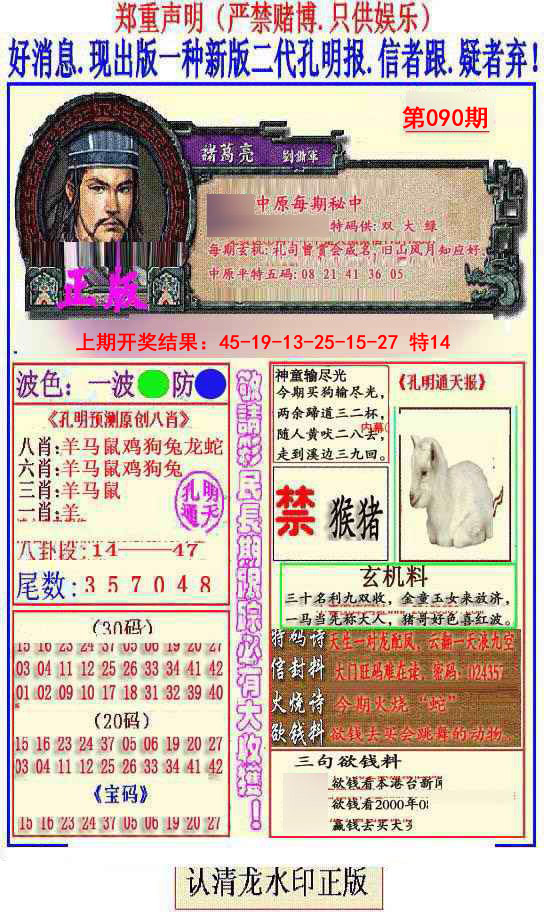 郑重声明（严禁赌博.只供娱乐）
好消息.现出版一种新版二代孔明报.信者跟.疑者弃！
第090期
諸葛亮
中原每期秘中
特码供:双 大 绿
中原平特五码:08 21 41 36 05
正版
上期开奖结果：45-19-13-25-15-27 特14
波色：一波 防
《孔明预测原创八肖》
八肖:羊马鼠鸡狗兔龙蛇
六肖:羊马鼠鸡狗兔
三肖:羊马鼠
一肖:羊
孔明
通天
八卦段:14——47
尾数:357048
(30码)
15 16 23 24 37 05 06 19 20 27
03 04 11 12 25 26 33 34 41 42
01 02 09 10 17 18 31 32 39 40
(20码)
15 16 23 24 37 05 06 19 20 27
03 04 11 12 25 26 33 34 41 42
《宝码》
15 16 23 24 37 05 06 19 20 27
敬請彩民長期跟踪必有大收獲！
神童输尽光
今期买狗输尽光，
两余蹄道三二杯，
随人黄吠二八去，
内幕
走到溪边三九回。
《孔明通天报》
禁
猴猪
玄机料
三十名利九双收，金童玉女来放济，
一马当先称大人，猪哥好色喜红波。
特码诗 天生一对龙配凤，云翻一天液九空
信封料 大门旺码难在读，密码：024357
火烧诗 今期火烧“蛇”
欲钱料 欲钱去买会跳舞的动物。
三句欲钱料
欲钱看本港台新闻
欲钱看2000年0
赢钱去买天
认清龙水印正版